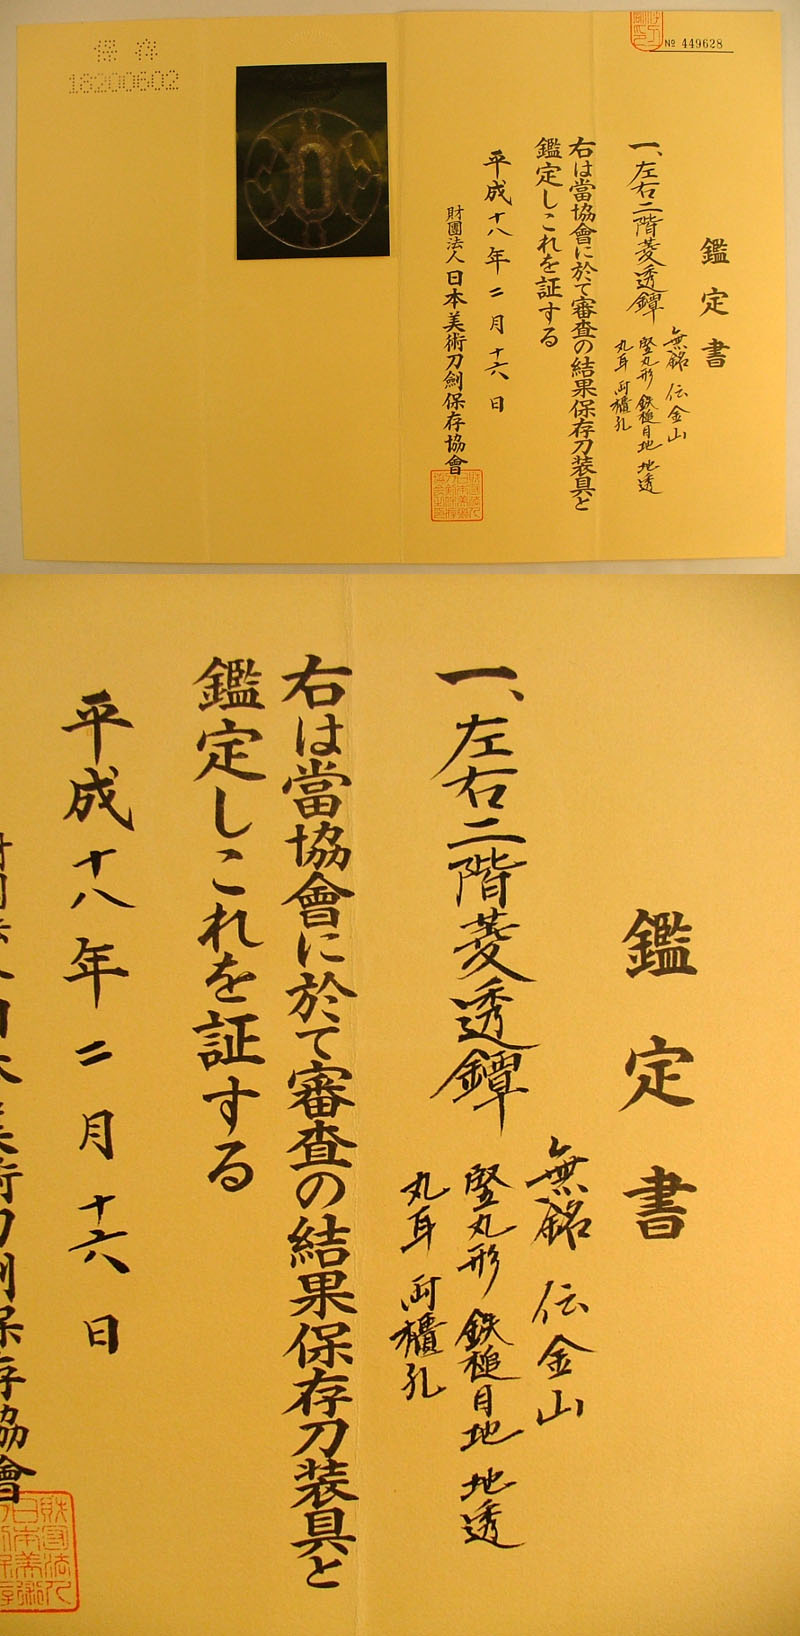 保存
18200602
№ 449628
鑑定書
一、左右二階菱透鐔
無銘 伝金山
竪丸形 鉄槌目地 地透
丸耳 両櫃孔
右は當協會に於て審査の結果保存刀装具と
鑑定しこれを証する
平成十八年二月十六日
財團法人 日本美術刀劍保存協會
鑑定書
一、左右二階菱透鐔
無銘 伝金山
竪丸形 鉄槌目地 地透
丸耳 両櫃孔
右は當協會に於て審査の結果保存刀装具と
鑑定しこれを証する
平成十八年二月十六日